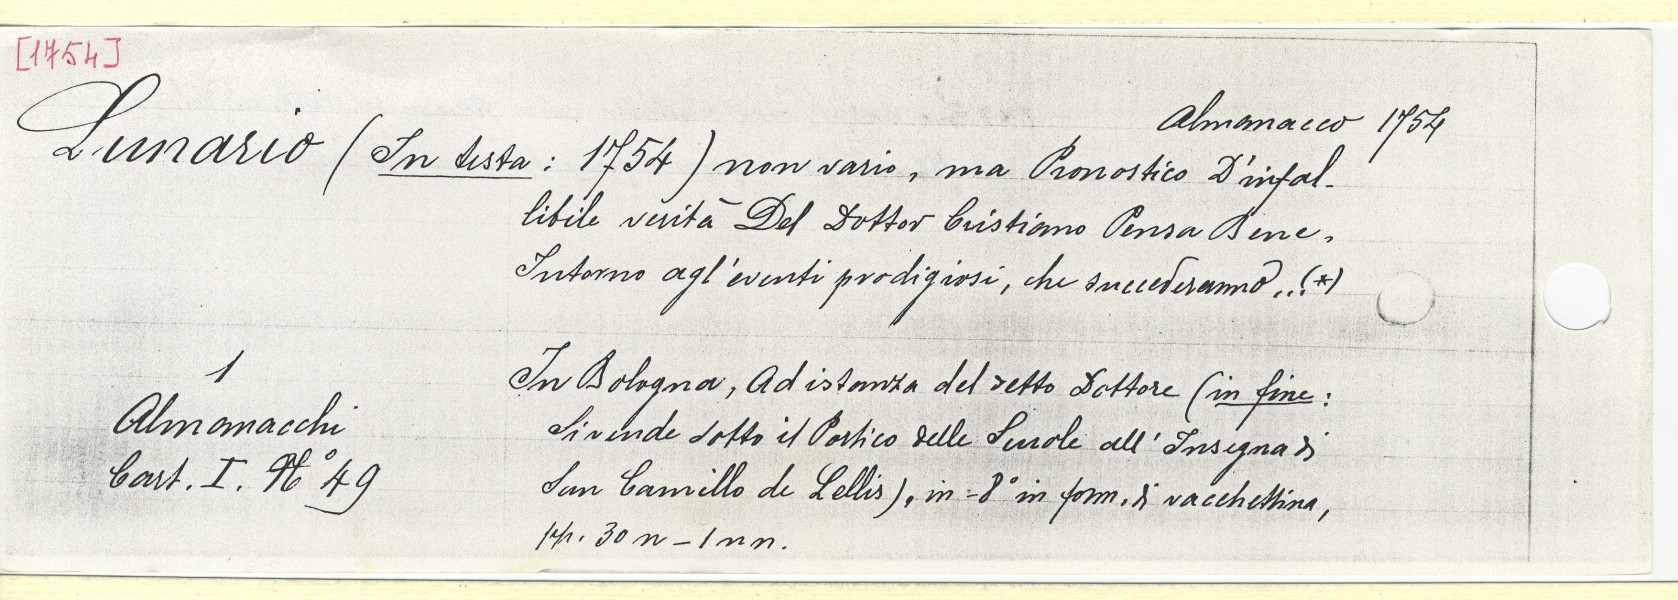 [1754]
Almanacco 1754
Lunario (In testa: 1754) non vario, ma Pronostico D'infal-
libile verità Del Dottor Cristiano Pensa Bene,
Intorno agl'eventi prodigiosi, che succederanno...(*)
1
Almanacchi
Cart. I. N° 49
In Bologna, Ad istanza del detto Dottore (in fine:
Si vende sotto il Portico delle Scuole all'Insegna di
San Camillo de Lellis), in-8° in form. di vacchettina,
pp. 30 n - 1 nn.